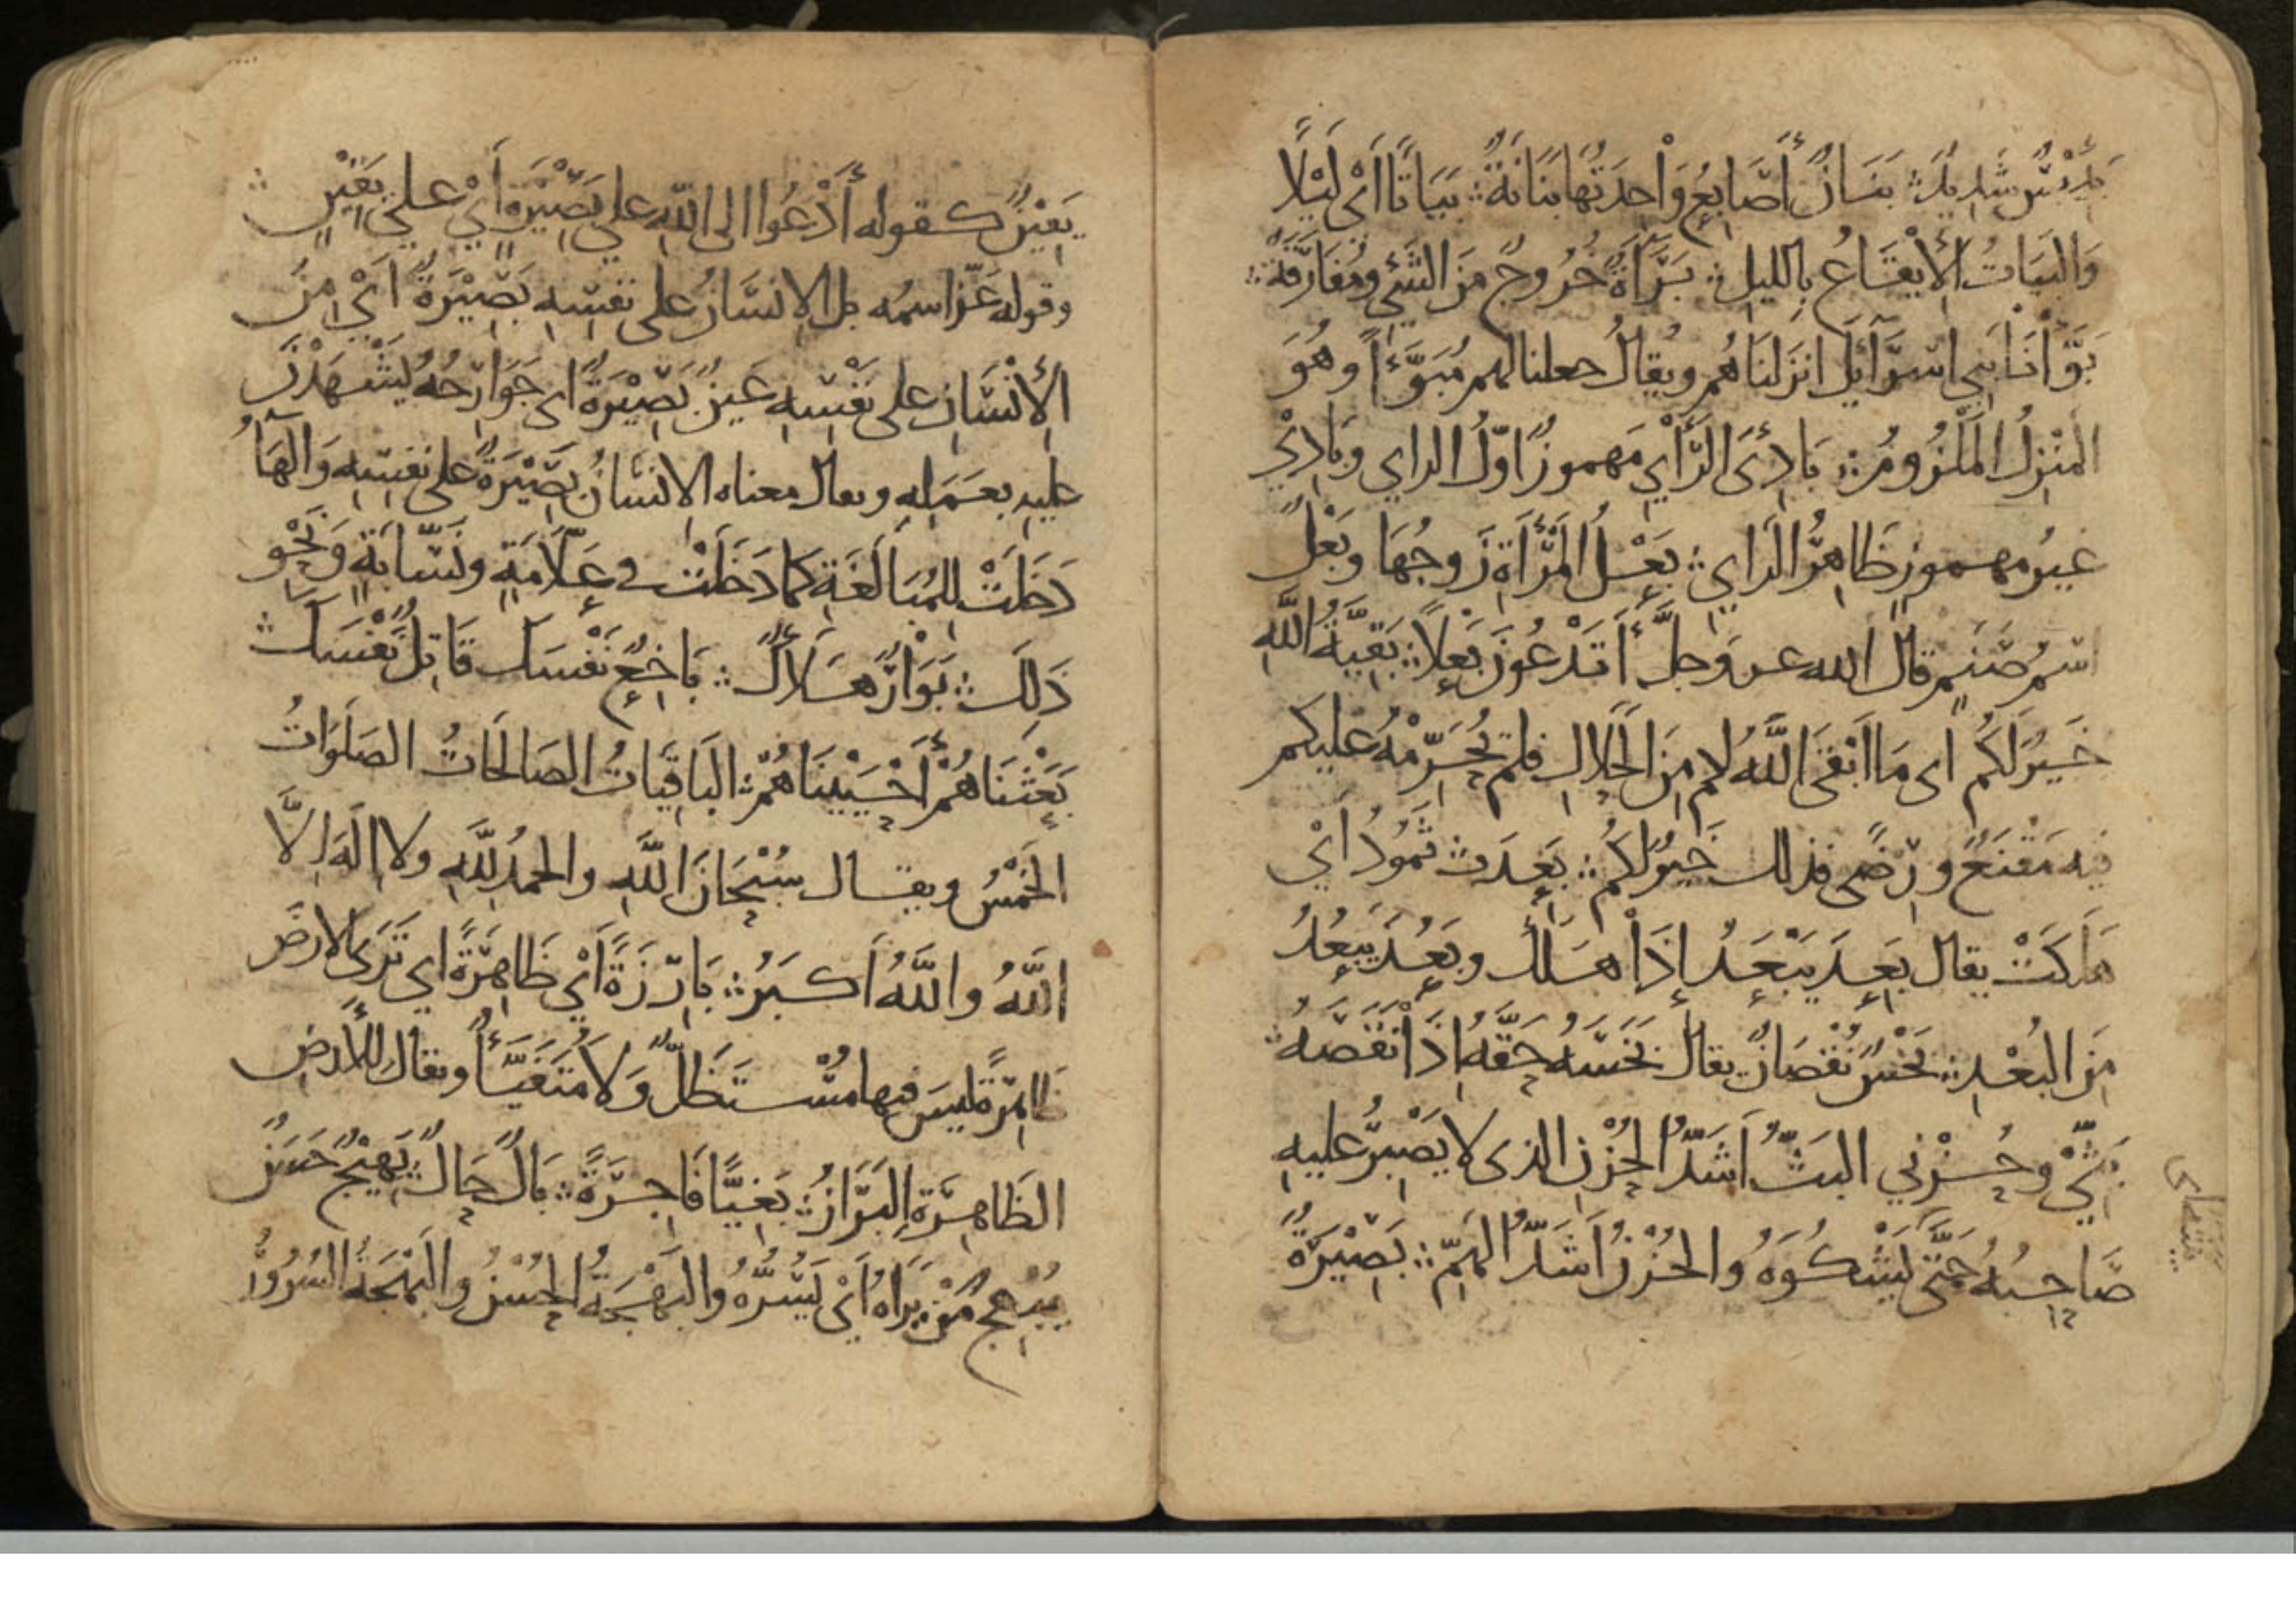 بَئِيْسٍ شَدِيْدٍ ۞ بَنَانٌ أَصَابِعُ وَاْحِدَتُهَا بَنَانَةٌ ۞ بَيَاتًا اَىْ لَيْلًا
وَالبَيَاتُ الْإِيْقَاعُ بِالليلِ ۞ بَرَآءَةٌ خُرُوجٌ مِنَ الشَّيْءِ ومُفَارَقَةٌ ۞
بَوَّأْنَا بَنِي اسْرَآئِلَ انزَلنَاهُم ويُقالُ جعلنا لهم مُبَوَّءًا وهُوَ
المَنْزِلُ المَلْزُومُ ۞ بَادِئَ الرَّأْيِ مَهموزٌ اوّلُ الراي وبَادِيَ
غيرُ مهموزٍ ظَاهِرُ الرَايِ ۞ بَعْلُ المَرْأَةِ زَوجُهَا وبَعْلٌ
اسْمُ صَنَمٍ قالَ الله عز وَجلَّ أَتَدْعُونَ بَعْلًا ۞ بَقِيَّةُ اللَّهِ
خَيرٌ لَكُم اى مَا اَبْقَى اللَّهُ لكم مِنَ الحَلالِ فلم يُحَرِّمْهُ عَليكم
فيه مَقْنَعٌ ورِضًى فذلك خَيرٌ لكُم ۞ بَعِدَت ثَمُوْدُ اَيْ
هَلَكَتْ يقال بَعِدَ يَبْعَدُ إِذَا هَلَكَ وبَعُدَ يَبْعُدُ
مِنَ البُعْدِ ۞ بَخْسٌ نُقْصَانٌ يقالُ بَخَسَهُ حَقَّهُ اِذَا نَقَصَهُ ۞
بَثّيْ وحُزْنِي البَثُّ اَشَدُّ الحُزْنِ الذى لا يَصْبِرُ عليهِ
صَاحِبُهُ حَتَّى يَشْكُوَهُ والحُزْنُ اَشَدُّ الهَمِّ ۞ بَصِيْرَةٌ
يَقِيْنٌ كقوله أَدْعُوا الى اللَّهِ على بَصِيْرَةٍ أَيْ على يَقِيْنٍ ۞
وقوله عَزّ اسمُه بل الانسَانُ على نفسِهِ بَصِيْرَةٌ اَيْ مِنَ
الْإِنْسَانِ على نَفْسِهِ عَينٌ بَصِيْرَةٌ اى جَوَارِحُهُ يَشْهَدْنَ
عليهِ بعَمَلِهِ ويقال معناه الانسَانُ بَصِيْرَةٌ على نفسِهِ وَالهَآءُ
دَخَلَتْ للمُبَالَغَةِ كما دَخَلَتْ في عَلّامَةٍ ونَسّابَةٍ وَنَحْوِ
ذَلِكَ ۞ بَوَارٌ هَلَاكٌ ۞ بَاخِعٌ نَفْسَكَ قَاتِلٌ نَفْسَكَ ۞
بَعَثْنَاهُمْ أَحْيَيْنَاهُمْ ۞ البَاقِيَاتُ الصَالحَاتُ الصلَوَاتُ
الخَمْسُ ويقال سُبْحَانَ اللَّهِ والحمدُ للَّهِ ولا اِلَهَ اِلَّا
اللَّهُ واللَّهُ اَكبَرُ ۞ بَارِزَةً اَيْ ظَاهِرَةً اي تَرَى الارضَ
ظَاهِرَةً ليسَ فيها مُسْتَظَلٌّ وَلَا مُتَفَيَّأٌ ويقال للأَرضِ
الظَاهِرَةِ البَرَازُ ۞ بَغِيًّا فَاجِرَةً ۞ بَالٌ حَالٌ ۞ بَهِيْجٌ حَسَنٌ
يُبْهِجُ مَنْ يَرَاهُ اَيْ يَسُرُّهُ والبَهْجَةُ الحُسْنُ والبَهْجَةُ السُرُوْرُ